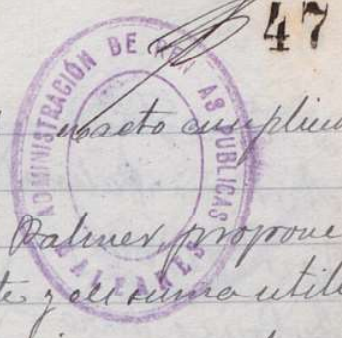 47
ADMINISTRACIÓN DE RENTAS PUBLICAS
BALEARES
exacto cumplim
Palmer, propone
te y de suma utili